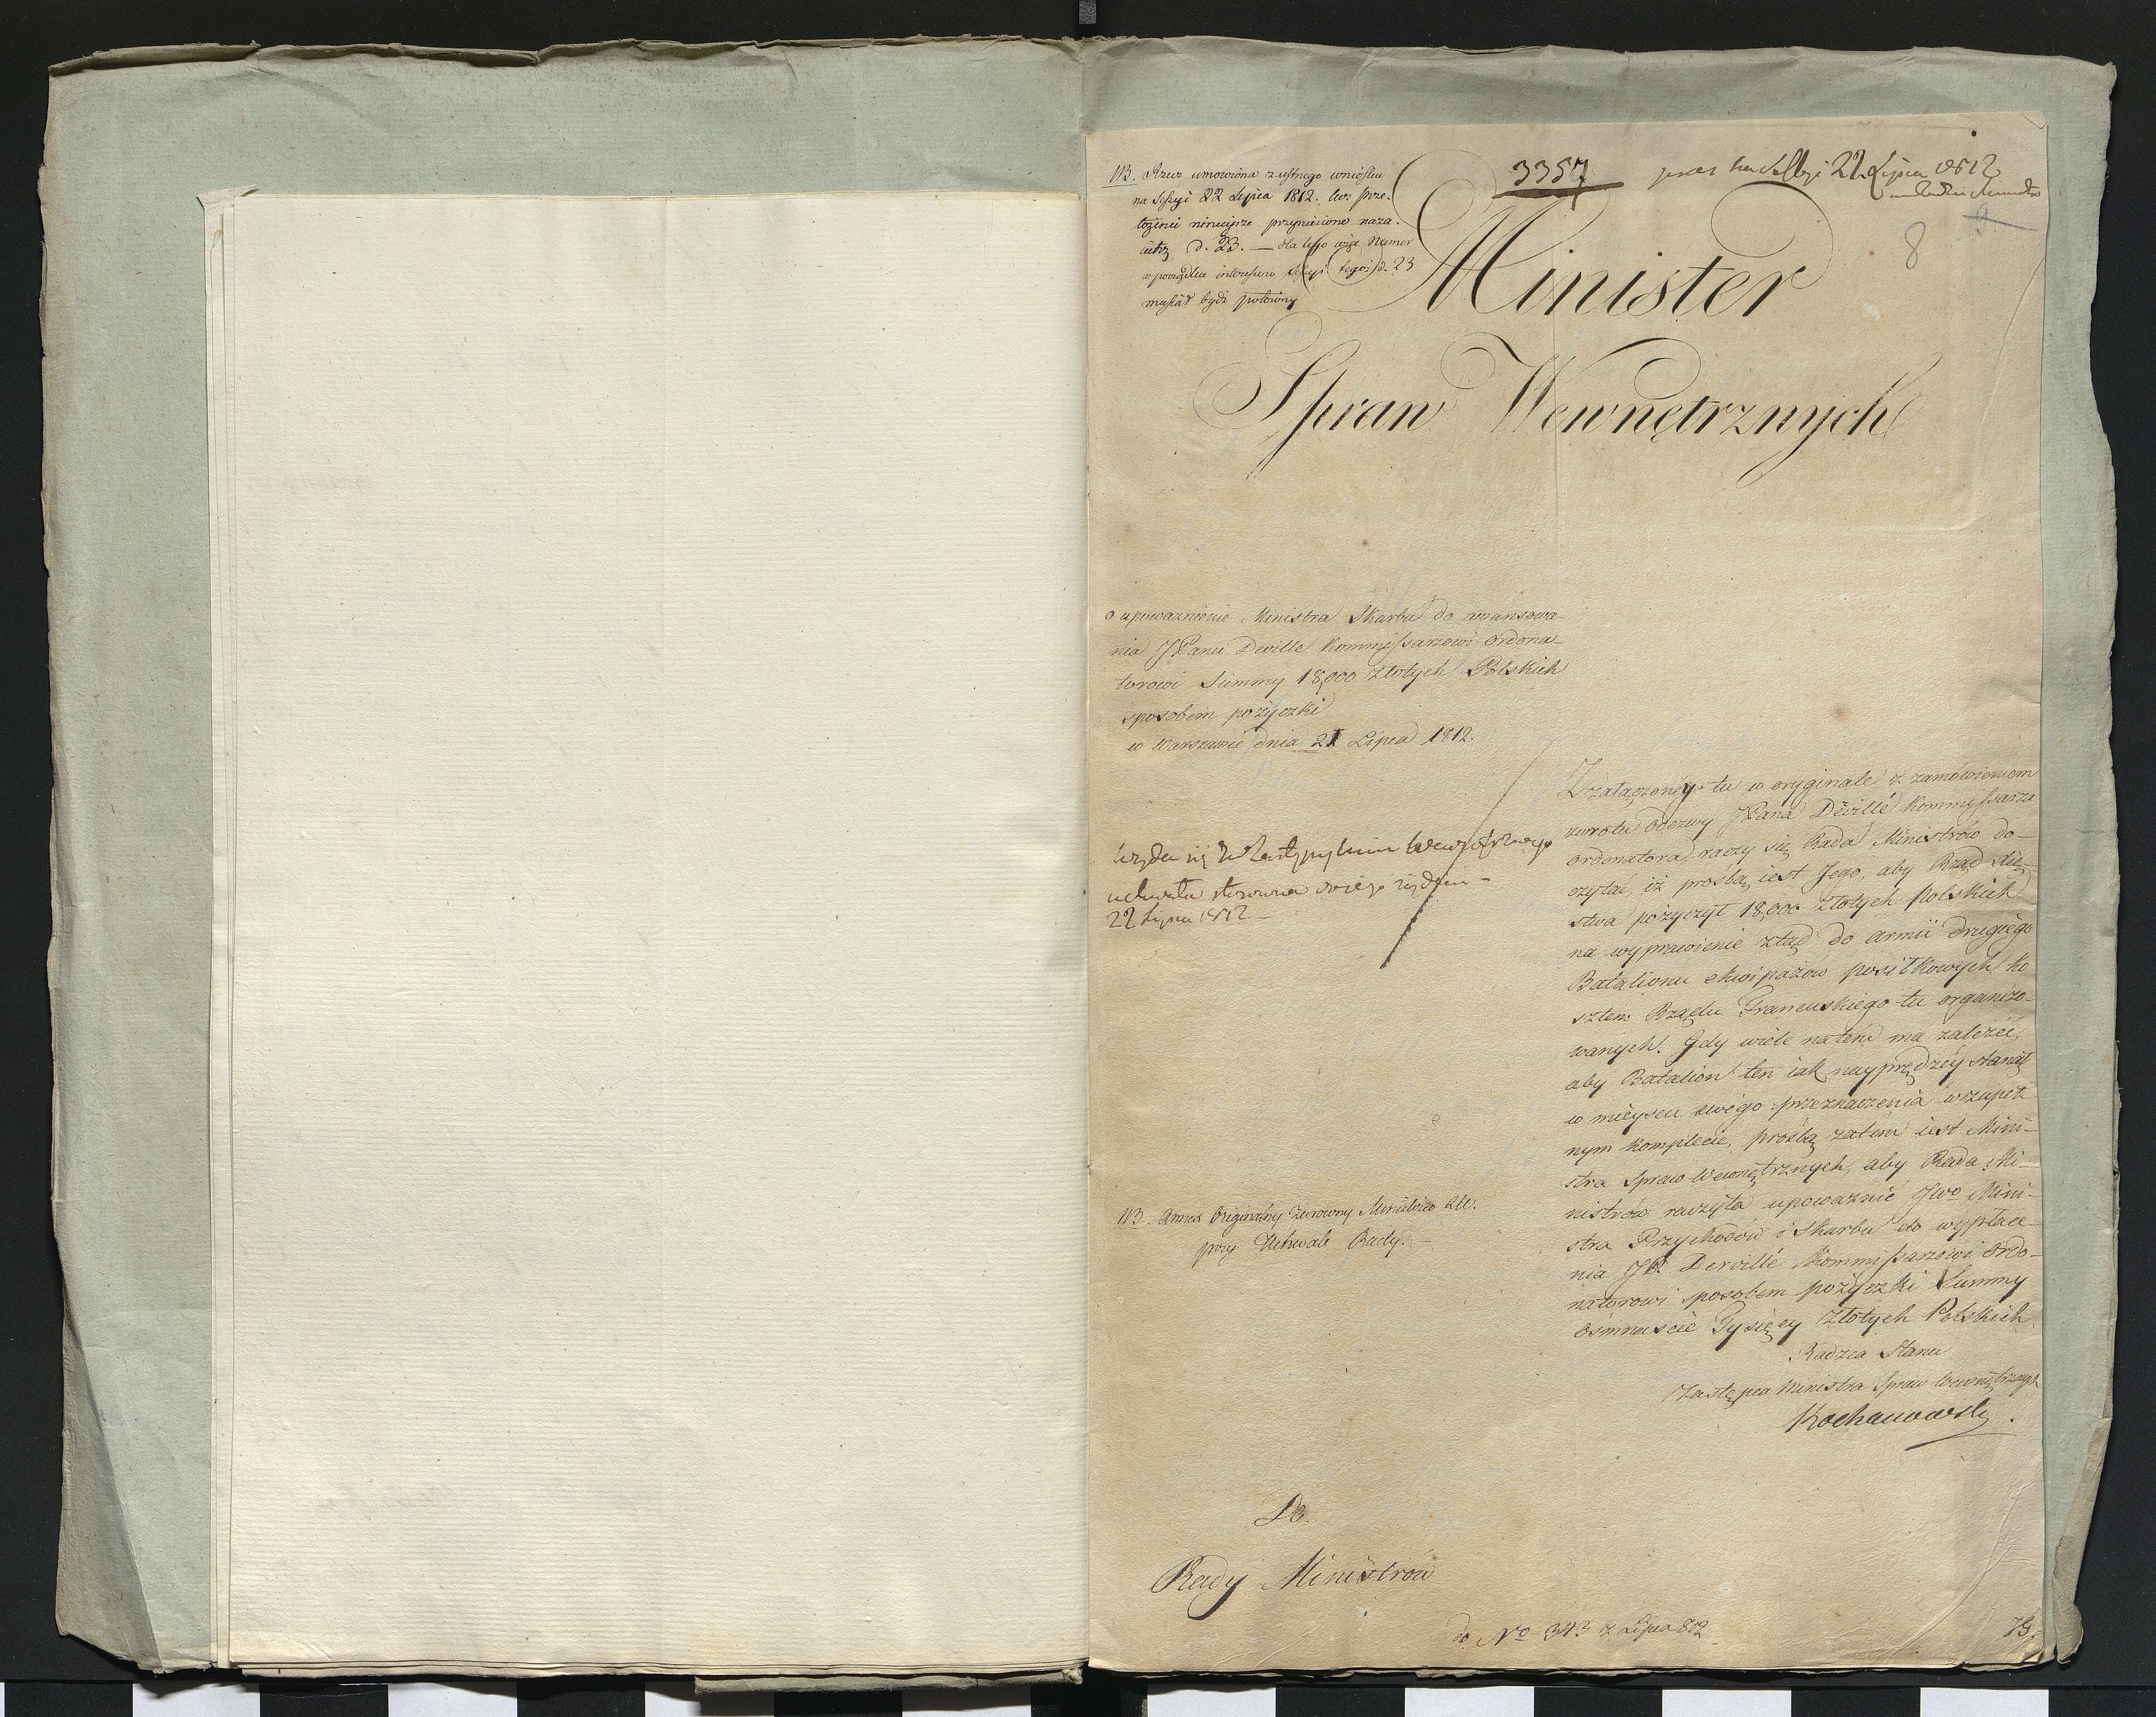 NB. Rzecz umowiona z ustnego wniosku
na Sessyi 22 Lipca 1812. lecz prze-
łożenie ninieysze przyniesione naza-
iutrz d. 23. — dla tego więc Numer
w porządku interessow Sessyi tegoż d. 23
musiał bydź położony
3357
22 Lipca 1812
8
9.
Minister
Spraw Wewnętrznych
o upoważnienie Ministra Skarbu do awansowa-
nia JPanu Deville Kommissarzowi ordona-
torowi Summy 18,000 złotych Polskich
sposobem pożyczki
w Warszawie dnia 21 Lipca 1812.
uchwała stosowna
22 Lipca 1812 —
Z załączoney tu w oryginale z zamówieniem
zwrotu odezwy JPana Déville Kommissarza
ordonatora raczy się Rada Ministrów do-
czytać, iż prośbą iest Jego, aby Rząd Xię-
stwa pożyczył 18,000 złotych Polskich
na wyprawienie ztąd do armii drugiego
Batalionu ekwipażów posiłkowych ko-
sztem Rządu Francuskiego tu organizo-
wanych. Gdy wiele na tem ma zależeć,
aby Batalion ten iak nayprędzéy stanął
w mieyscu swégo przeznaczenia w zupeł-
nym komplecie, prośbą zatem iest Mini-
stra Spraw Wewnętrznych, aby Rada Mi-
nistrów raczyła upoważnić JWo Mini-
stra Przychodów i Skarbu do wypłace-
nia JP. Derville Kommissarzowi ordo-
natorowi sposobem pożyczki Summy
osmnaście Tysięcy Złotych Polskich
Radzca Stanu
Zastępca Ministra Spraw Wewnętrznych
Kochanowski.
NB. Annex Originalny zwrócony Ministrowi
przy Uchwale Rady. —
Do
Rady Ministrów
do No 343 z Lipca 812